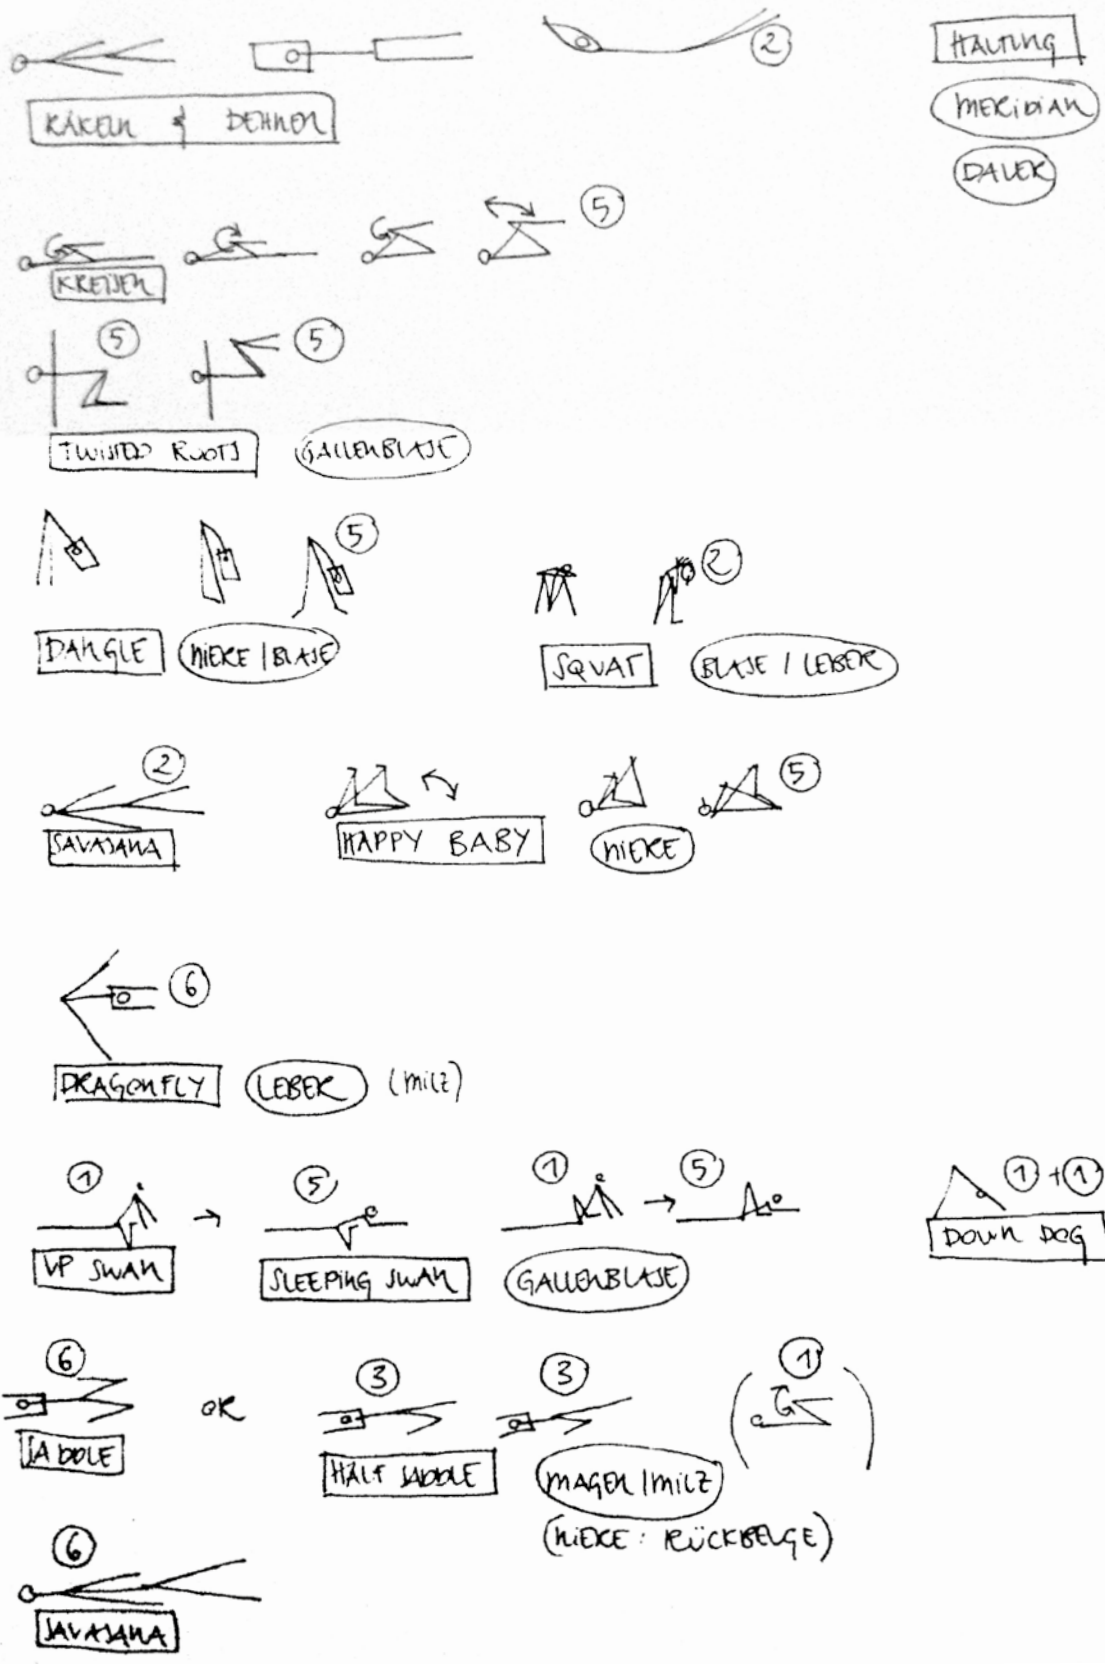 2
HALTUNG
MERIDIAN
RÄKELN & DEHNEN
DAUER
5
KREISEN
5 5
TWISTED ROOTS GALLENBLASE
5 2
DANGLE NIERE / BLASE SQUAT BLASE / LEBER
2 5
SAVASANA HAPPY BABY NIERE
6
DRAGONFLY LEBER (MILZ)
1 → 5 1 → 5 1 + 1
UP SWAN SLEEPING SWAN GALLENBLASE DOWN DOG
6 OR 3 3 ( 1 )
SADDLE HALF SADDLE MAGEN / MILZ
(NIERE: RÜCKBEUGE)
6
SAVASANA